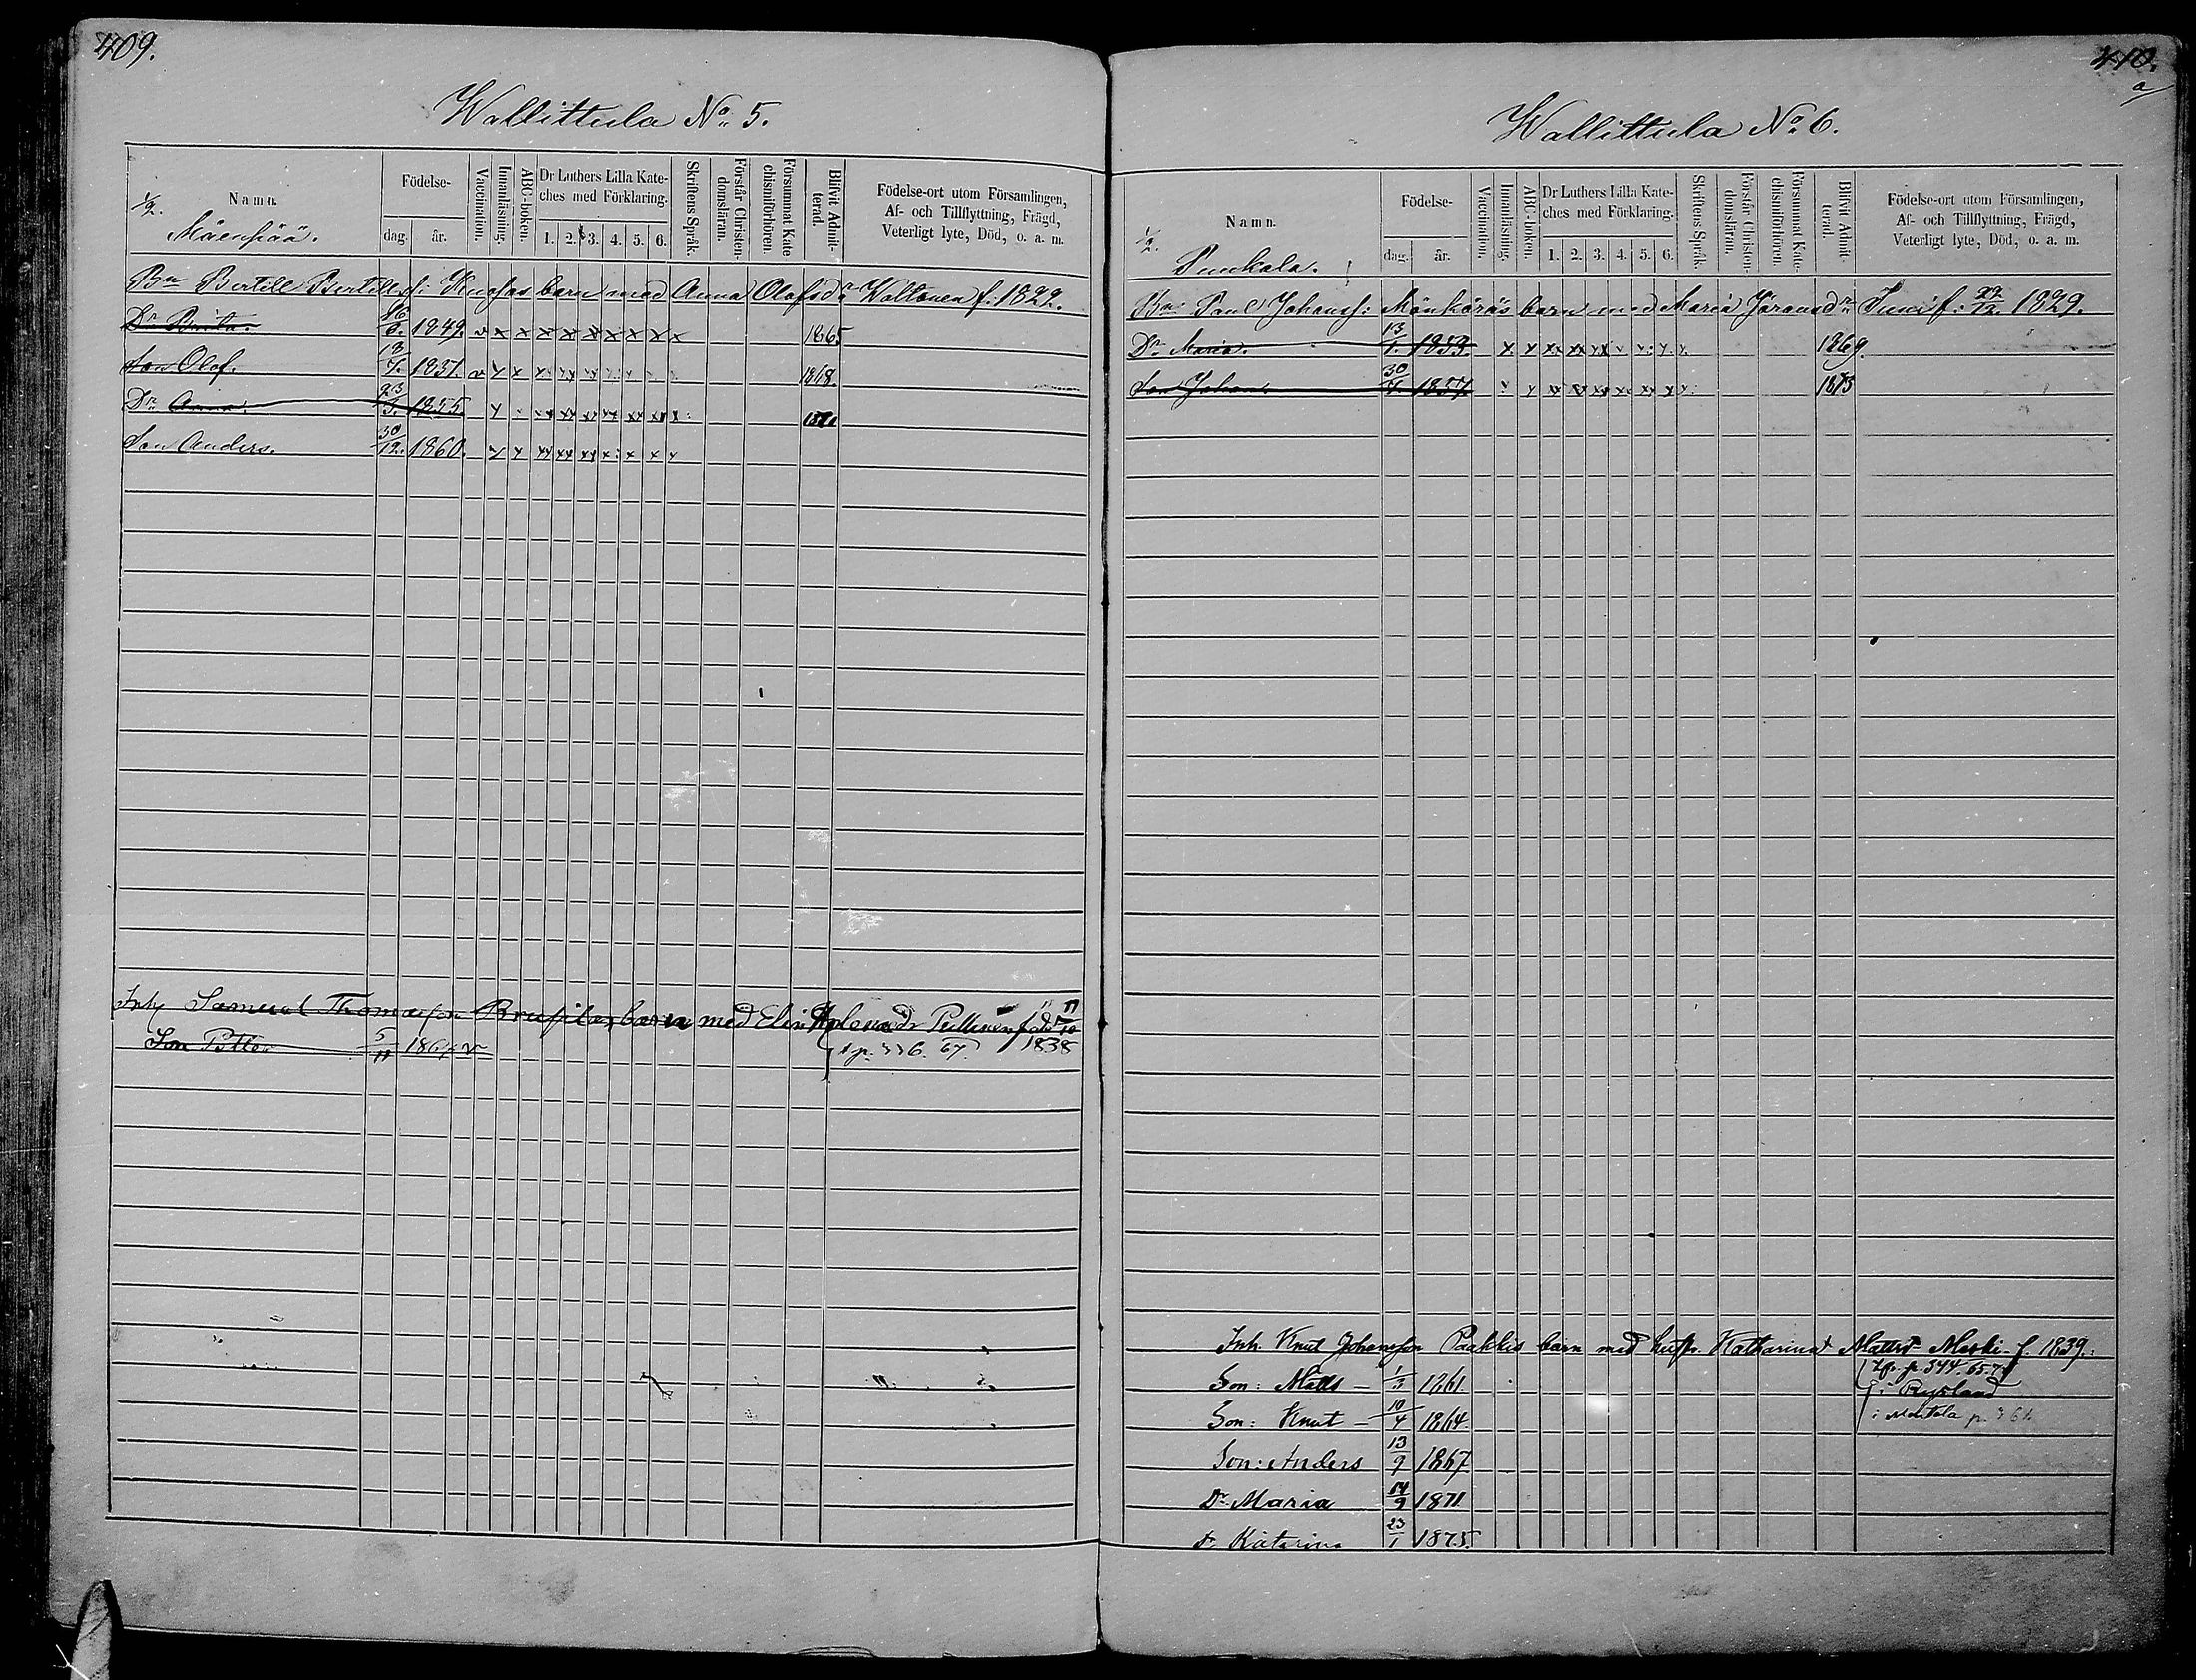 409.
Wallittula No 5.
½.
Namn.
Mäenpää.
Födelse-
dag. år.
Vaccination.
Innanläsning.
ABC-boken.
Dr Luthers Lilla Kate-
ches med Förklaring.
1. 2. 3. 4. 5. 6.
Skriftens Språk.
Förstår Christen-
domsläran.
Försummat Kate
chismiförhören.
Blifvit Admit-
terad.
Födelse-ort utom Församlingen,
Af- och Tillflyttning, Frägd,
Veterligt lyte, Död, o. a. m.
Bn Bertill Bertills: barn med Anna Olofsdr Waltonen f: 1822.
Dr Brita. 16/6. 1849. v x x x x x x x x x 1865
Son Olof. 1851 v x x x 1868
Dr Anna. 23/5. 1855 x xx xx xx xx xx xx x: 1871
Son Anders. 30/12. 1860. x x xx xx xx x: x x x
Inh Samuel Thomasson barn med Elin Pullinen 1838
Son Petter 5/11 186 v p. 336. 67
410.
a/
Wallittula No 6.
½.
Namn.
Punkala.
Födelse-
dag. år.
Vaccination.
Innanläsning.
ABC-boken.
Dr Luthers Lilla Kate-
ches med Förklaring.
1. 2. 3. 4. 5. 6.
Skriftens Språk.
Förstår Christen-
domsläran.
Försummat Kate-
chismiförhören.
Blifvit Admit-
terad.
Födelse-ort utom Församlingen,
Af- och Tillflyttning, Frägd,
Veterligt lyte, Död, o. a. m.
Bn: Paul Johanss: Mönkäräs barn med Maria Göransdr Suni f: 22/12. 1829.
Dr Maria. 13/1. 1853. 1869.
Son Johan. 30/7. 1857. 1873
Inh. Knut Johansson Paakkis barn med hustr. Katharina Mattsdr Meski f. 1839.
Son: Matts — 1/3 1861. p. 344. 65-7
i Ryssland
Son: Knut — 10/4 1864. i p. 36
Son: Anders 13/9 1867
Dr Maria 14/9 1871
Dr Katarina 23/1 1875.